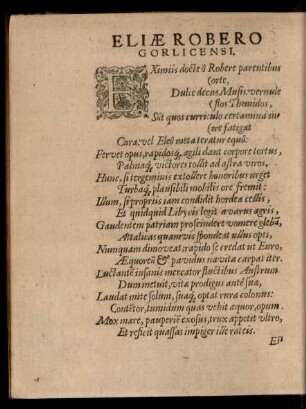 ELIÆ ROBERO
GORLICENSI.
EXimiis docte ô Robere parentibus
orte,
Dulce decus Musis: vernule
flos Themidos,
Sũt quos curriculo certamina in-
ire fatigat
Cura: vel Eleô meta teratur equô:
Fervet opus, rapidosq́; agili dant corpore tortus,
Palmaq́; victores tollit ad astra viros.
Hunc, si tergeminis extollere honoribus urget
Turbaq́; plausibili mobilis ore fremit:
Illum, si propriis jam condidit horrea cellis,
Et quidquid Libycis legit avarus agris,
Gaudentem patrium proscindere vomere glebã,
Attalicas quamvis spondeat ullus opes,
Nunquam dimoveat, rapido se credat ut Euro,
Æquoreũ & pavidus navita carpat iter.
Luctantẽ insanis mercator fluctibus Austrum
Dum metuit, vita prodigus antè suæ,
Laudat mite solum, suaq́; optat rura colonus:
Contẽtor, tumidum quas vehit æquor, opum.
Mox mare, pauperiẽ exosus, trux appetit ultro,
Et reficit quassas impiger ille rateis.